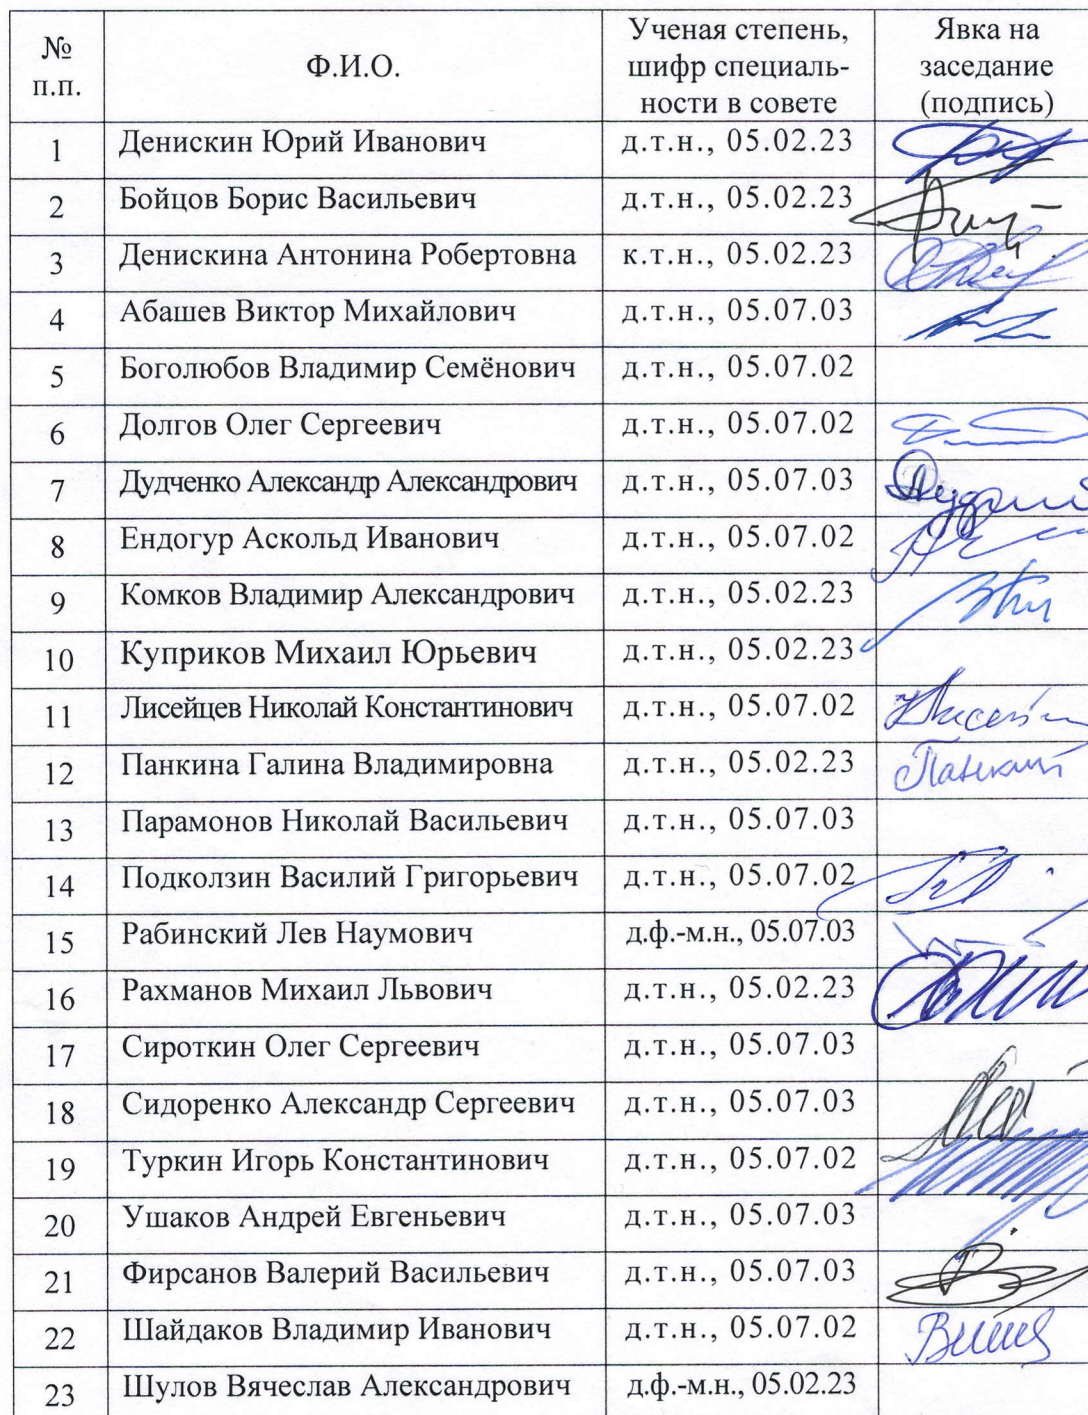 № п.п. Ф.И.О. Ученая степень, шифр специаль-ности в совете Явка на заседание (подпись)
1 Денискин Юрий Иванович д.т.н., 05.02.23
2 Бойцов Борис Васильевич д.т.н., 05.02.23
3 Денискина Антонина Робертовна к.т.н., 05.02.23
4 Абашев Виктор Михайлович д.т.н., 05.07.03
5 Боголюбов Владимир Семёнович д.т.н., 05.07.02
6 Долгов Олег Сергеевич д.т.н., 05.07.02
7 Дудченко Александр Александрович д.т.н., 05.07.03
8 Ендогур Аскольд Иванович д.т.н., 05.07.02
9 Комков Владимир Александрович д.т.н., 05.02.23
10 Куприков Михаил Юрьевич д.т.н., 05.02.23
11 Лисейцев Николай Константинович д.т.н., 05.07.02
12 Панкина Галина Владимировна д.т.н., 05.02.23
13 Парамонов Николай Васильевич д.т.н., 05.07.03
14 Подколзин Василий Григорьевич д.т.н., 05.07.02
15 Рабинский Лев Наумович д.ф.-м.н., 05.07.03
16 Рахманов Михаил Львович д.т.н., 05.02.23
17 Сироткин Олег Сергеевич д.т.н., 05.07.03
18 Сидоренко Александр Сергеевич д.т.н., 05.07.03
19 Туркин Игорь Константинович д.т.н., 05.07.02
20 Ушаков Андрей Евгеньевич д.т.н., 05.07.03
21 Фирсанов Валерий Васильевич д.т.н., 05.07.03
22 Шайдаков Владимир Иванович д.т.н., 05.07.02
23 Шулов Вячеслав Александрович д.ф.-м.н., 05.02.23